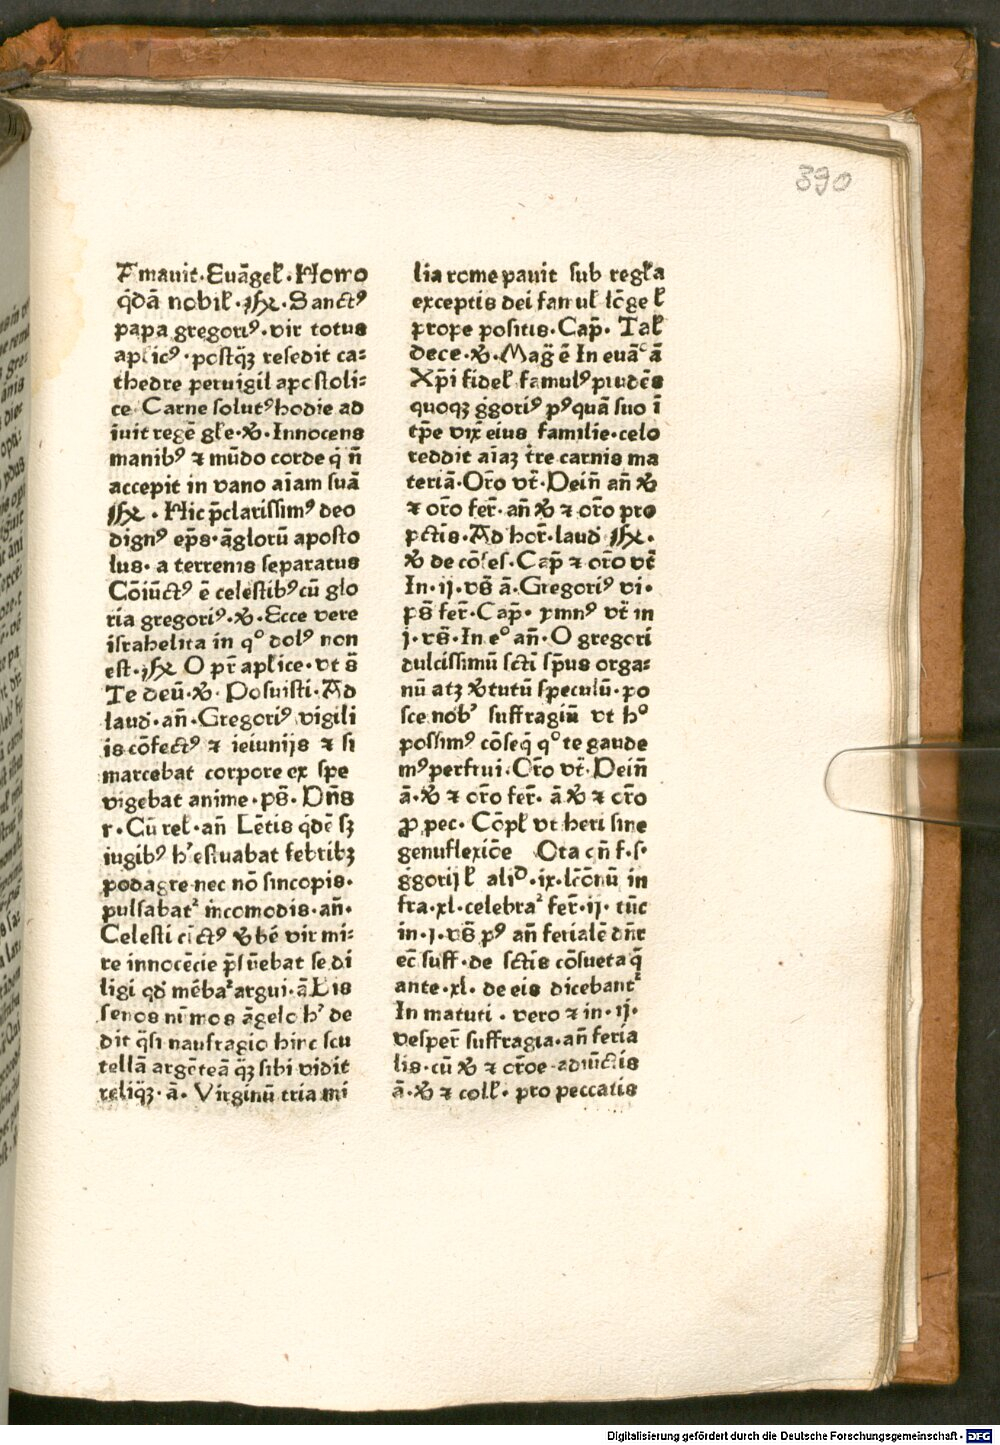 390
Amauit·Euāgel̄·Homo
q̇dā nobil̄·℟·Sanctꝰ
papa gregoriꝰ·vir totus
aplicꝰ·postq̄ꝫ resedit ca⸗
thedre peruigil apostoli⸗
ce Carne solutꝰ hodie ad
iuit regē gl̄e·℣·Innocens
manibꝰ ⁊ mūdo corde q̇ n̄
accepit in vano aīam suā
℟·Hic p̄clarissimꝰ deo
dignꝰ ep̄s·āglorū aposto
lus·a terrenis separatus
Cōiūctꝰ ē celestibꝰ cū glo
ria gregoriꝰ·℣·Ecce vere
israhelita in qͦ dolꝰ non
est·℟ O pr̄ aplice·vt s̄
Te deū·℣·Posuisti·Ad
laud·an̄·Gregoriꝰ vigili
is cōfectꝰ ⁊ ieiunijs ⁊ si
marcebat corpore ex spe
vigebat anime·ps̄·Dn̄s
r·Cū rel·an̄ Lētis q̇dē sꝫ
iugibꝰ hͥ estuabat febribꝫ
podagre nec nō sincopis·
pulsabat᷑ incomodis·an̄·
Celesti cīctꝰ v̓bē vir mi⸗
re innocēcie p̄suēbat se di
ligi qd mēba᷑ argui·ā Bis
senos nūmos āgelo hͥ de
dit q̄si naufragio hinc scu
tellā argētea q̄ꝫ sibi vidit
reliq̄ꝫ·ā·Virginū tria mi
lia rome pauit sub regl̄a
exceptis dei famul̄ lōge l̄
prope positis·Cap̄·Tal̄
dece·℣·Maḡ ē In euāͨ ā
Xp̄i fidel̄ famulꝰ prudēs
quoqꝫ ġgoriꝰ pꝰquā suo ī
tp̄e vix̄ eius familie·celo
reddit aīaꝫ t̄re carnis ma
teriā·Or̄o vt̄·Dein̄ an̄ ℣
⁊ or̄o fer̄·an̄ ℣ ⁊ or̄o pro
pctīs·Ad hor̄·laud ℟·
℣ de cōfes·Cap̄ ⁊ or̄o vt̄
In·ij·vs̄ ā·Gregoriꝰ vi·
ps̄ fer̄·Cap̄·ymnꝰ vt̄ in
j·vs̄·In eͦ an̄·O gregori
dulcissimū sctī sp̄us orga⸗
nū atꝫ v̓tutū speculū·po
sce nobͥ suffragiū vt hͦ
possimꝰ cōseq̄ qͦ te gaude
mꝰ perfrui·Or̄o vt̄·Dein̄
ā·℣ ⁊ or̄o fer̄·ā ℣ ⁊ or̄o
ꝓ pec·Cōpl̄ vt heri sine
genuflexiōe Ota cn̄ f·s·
ġgorij l̄ aliᴰ·ix·lc̄onū in
fra·xl·celebra᷑ fer̄·ij·tūc
in·j·vs̄ pꝰ an̄ ferialē dn̄r
ec̄ suff·de sctīs cōsueta q̄
ante·xl·de eis dicebant᷑
In matuti·vero ⁊ in·ij·
vesper̄ suffragia·an̄ feria
lis·cū ℣ ⁊ or̄oe·adiūctis
ā·℣ ⁊ coll̄·pro peccatis
Digitalisierung gefördert durch die Deutsche Forschungsgemeinschaft - DFG